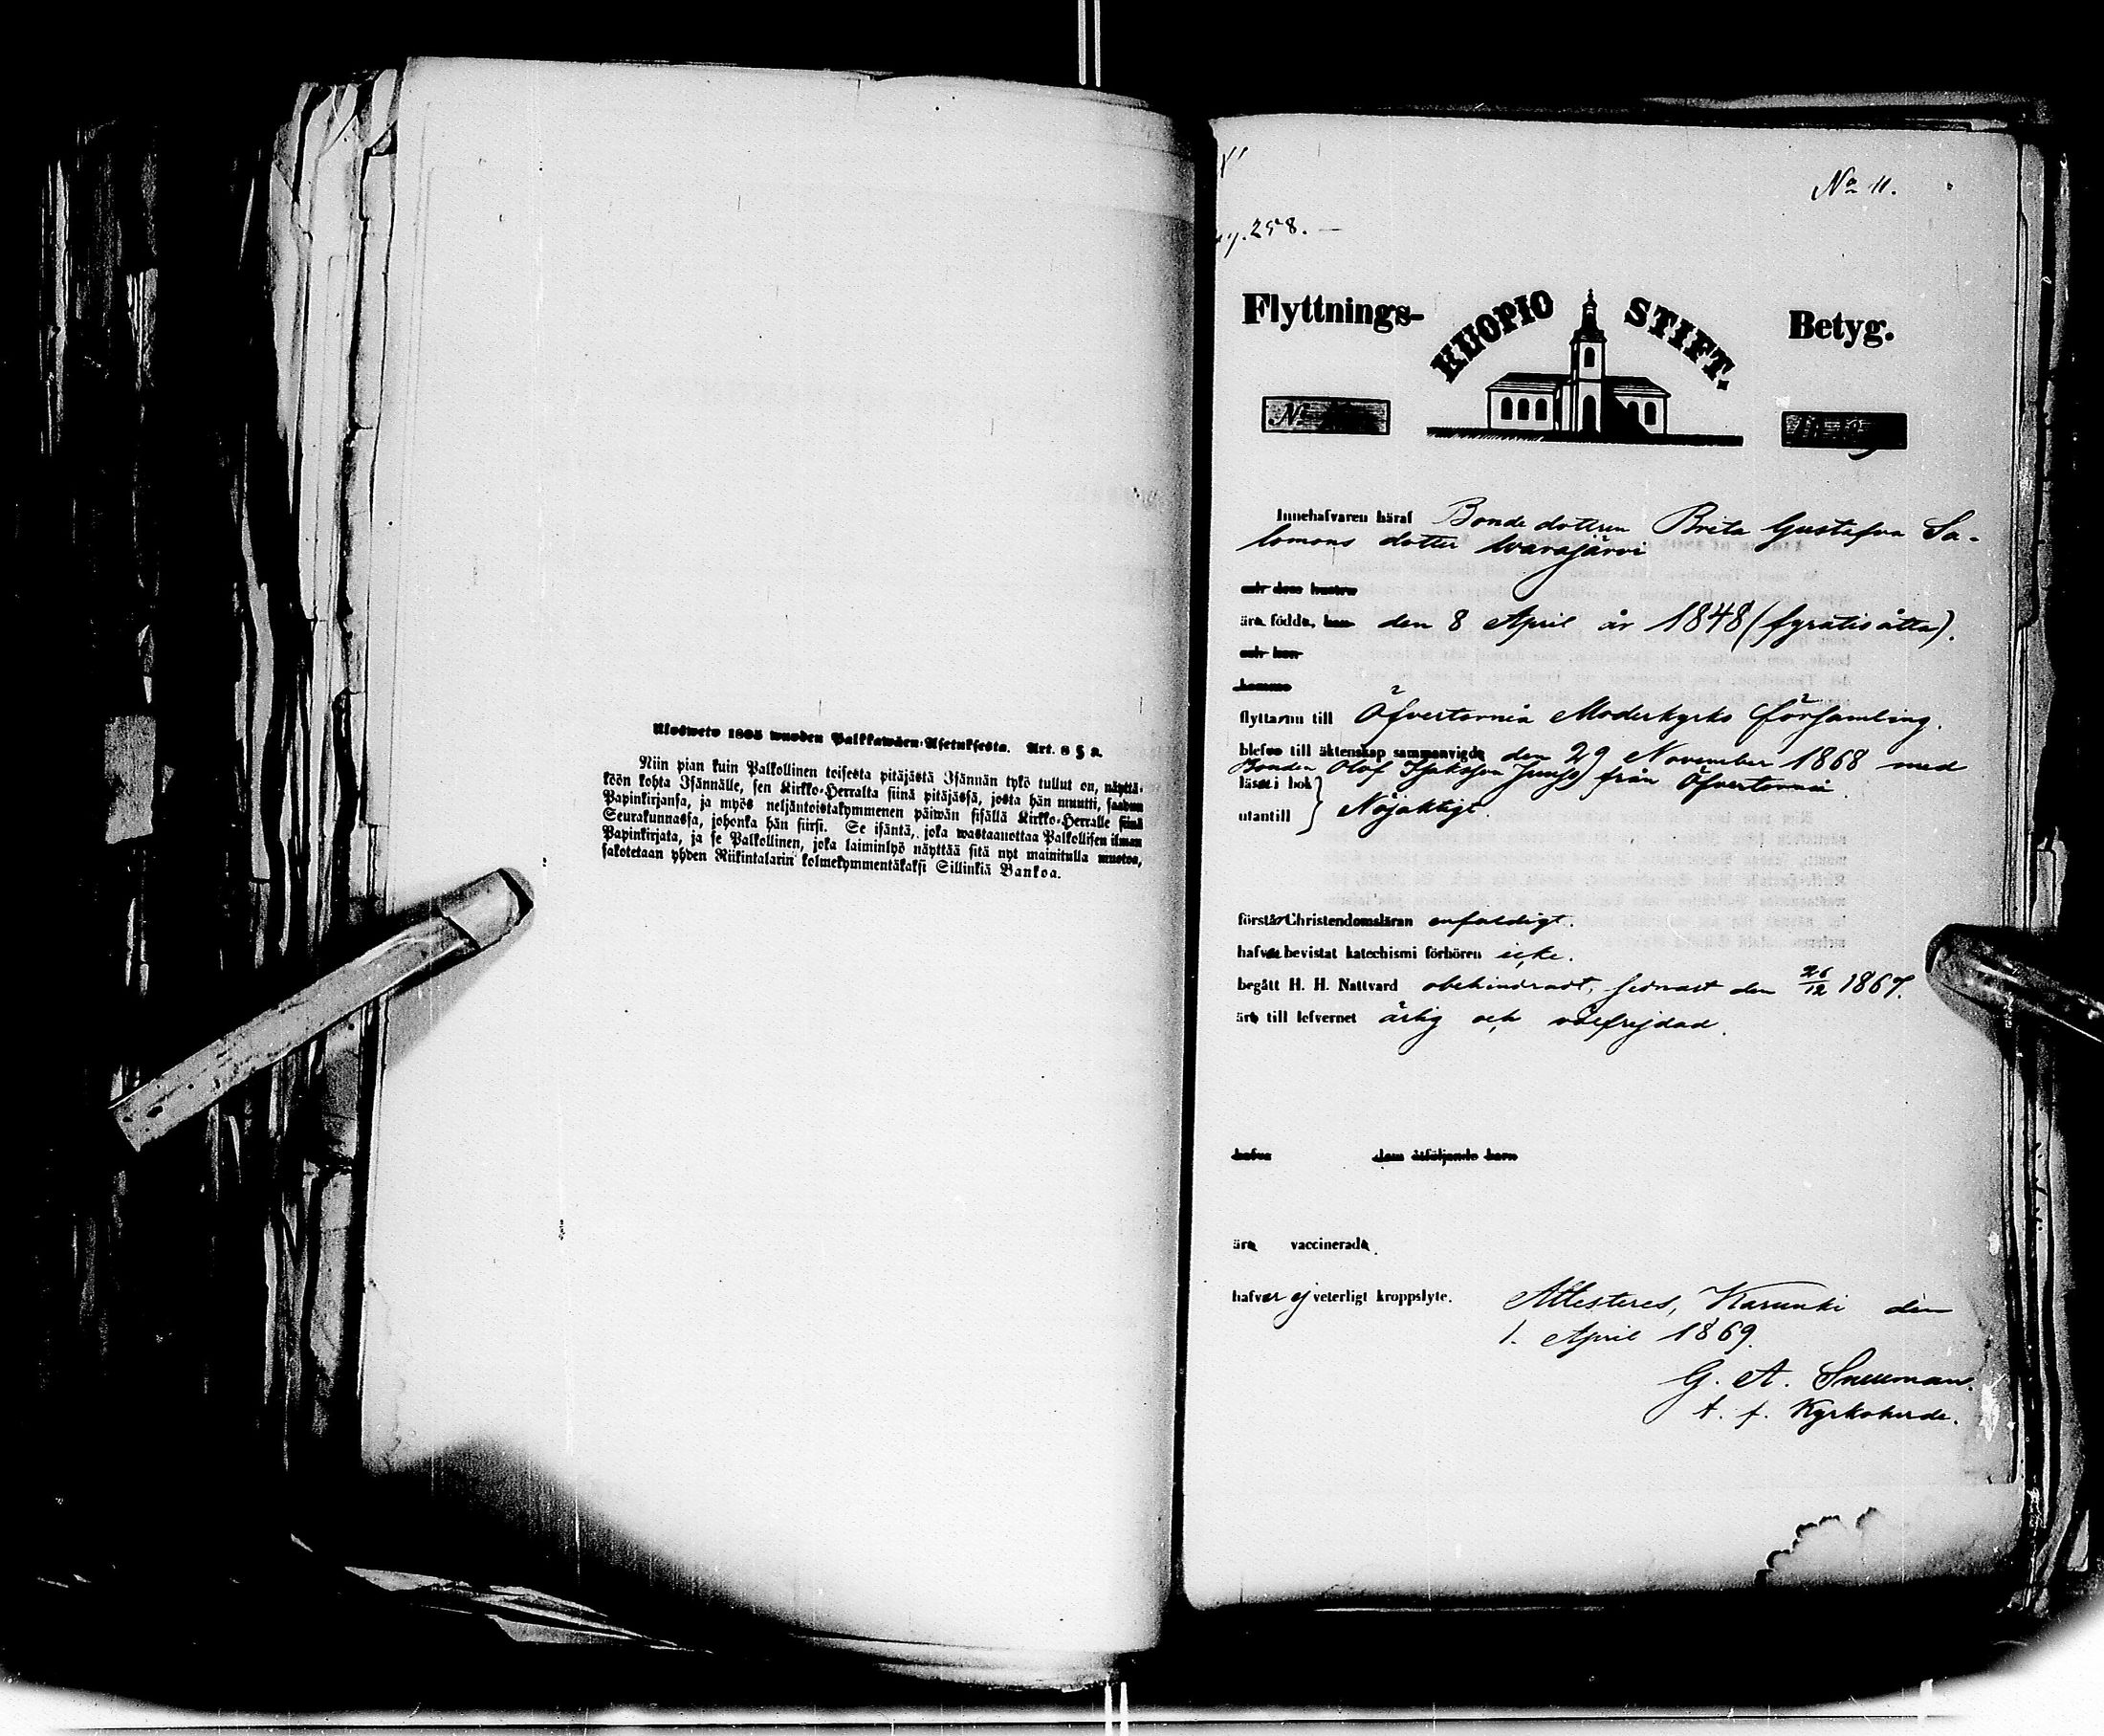 Ulosweto 1805 wuoden Palkkawäen-Asetuksesta. Art. 8 § 2.
Niin pian kuin Palkollinen toisesta pitäjästä Isännän tykö tullut on, näyttä-
köön kohta Isännälle, sen Kirkko-Herralta siinä pitäjässä, josta hän muutti, saadun
Papinkirjansa, ja myös neljäntoistakymmenen päiwän sisällä Kirkko-Herralle siinä
Seurakunnassa, johonka hän siirsi. Se isäntä, joka wastaanottaa Palkollisen ilman
Papinkirjata, ja se Palkollinen, joka laiminlyö näyttää sitä nyt mainitulla muotoa,
sakotetaan yhden Riikintalarin kolmekymmentäkaksi Sillinkiä Bankoa.
No 11.
258. —
Flyttnings- KUOPIO STIFT. Betyg.
No
Innehafvaren häraf Bonde dottren Brita Gustafva Sa-
lomons dotter Warajärvi
och dess hustru
äro födde, han den 8 April år 1848 (fyratioåtta).
och hon
komme
flytta nu till Öfvertorneå Moderkyrko församling.
blefvo till äktenskap sammanvigde den 29 November 1868 med
Bonden Olof Isaksson Junso) från Öfvertorneå
läsa i bok }
utantill } Nöjaktigt.
förstår Christendomsläran enfaldigt.
hafva bevistat katechismi förhören icke.
begått H. H. Nattvard obehindradt, sednast den 26/12 1867.
äro till lefvernet ärlig och välfrejdad.
hafva dem åtföljande barn
äro vaccinerade.
hafver ej veterligt kroppslyte. Attesteres, Karunki den
1. April 1869.
G. A. Snellman.
t. f. Kyrkoherde.